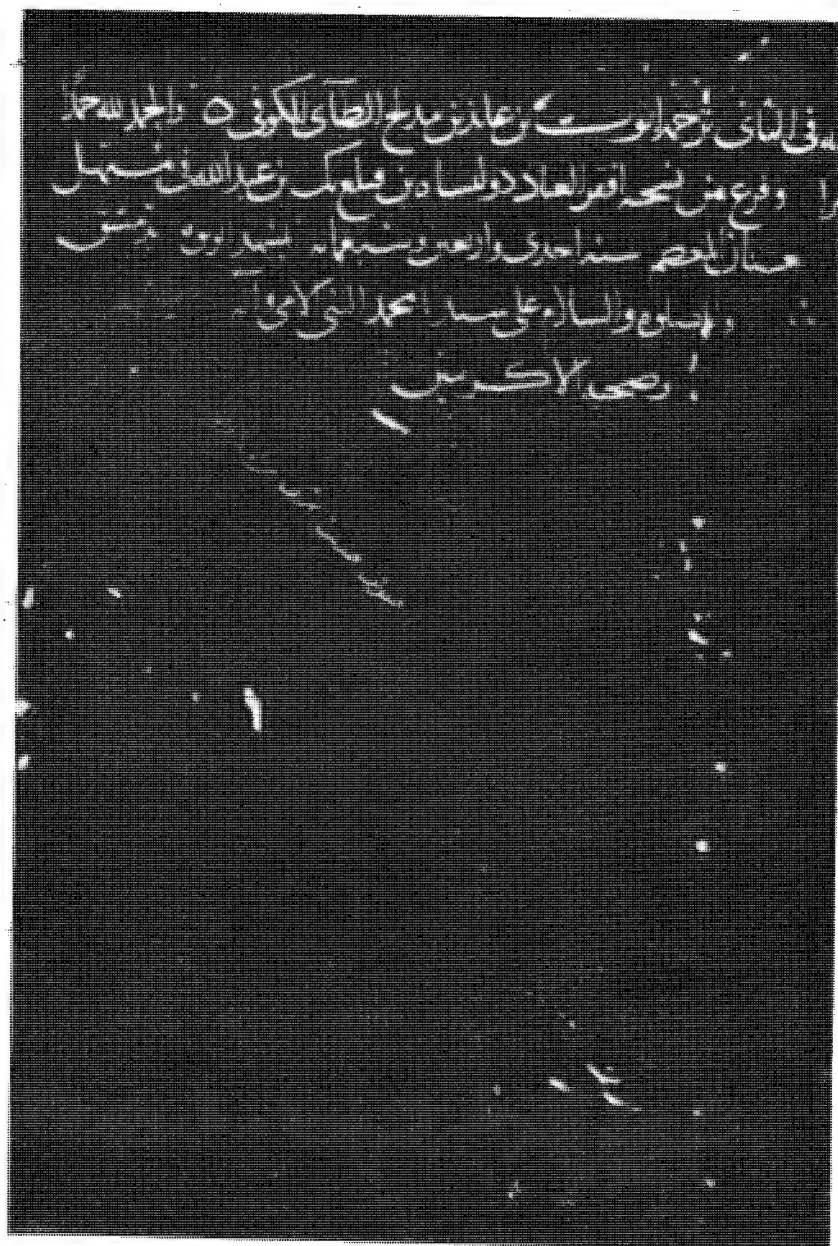 فى الثانى ترجمة ايوب بن عائذ بن مدلج الطائى الكوفى ٥ والحمد لله حمدا
وفرغ من نسخه افقر العباد دولتشاه بن عبد الله فى مستهل
المعظم سنة احدى واربعين وسبعمائة دمشق
والصلوة والسلام على سيدنا محمد النبى الامى وآله
وصحبه الاكرمين